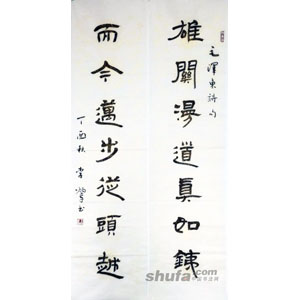 雄關漫道真如鐵
毛澤東詩句
而今邁步從頭越
丁酉秋
shufa.com